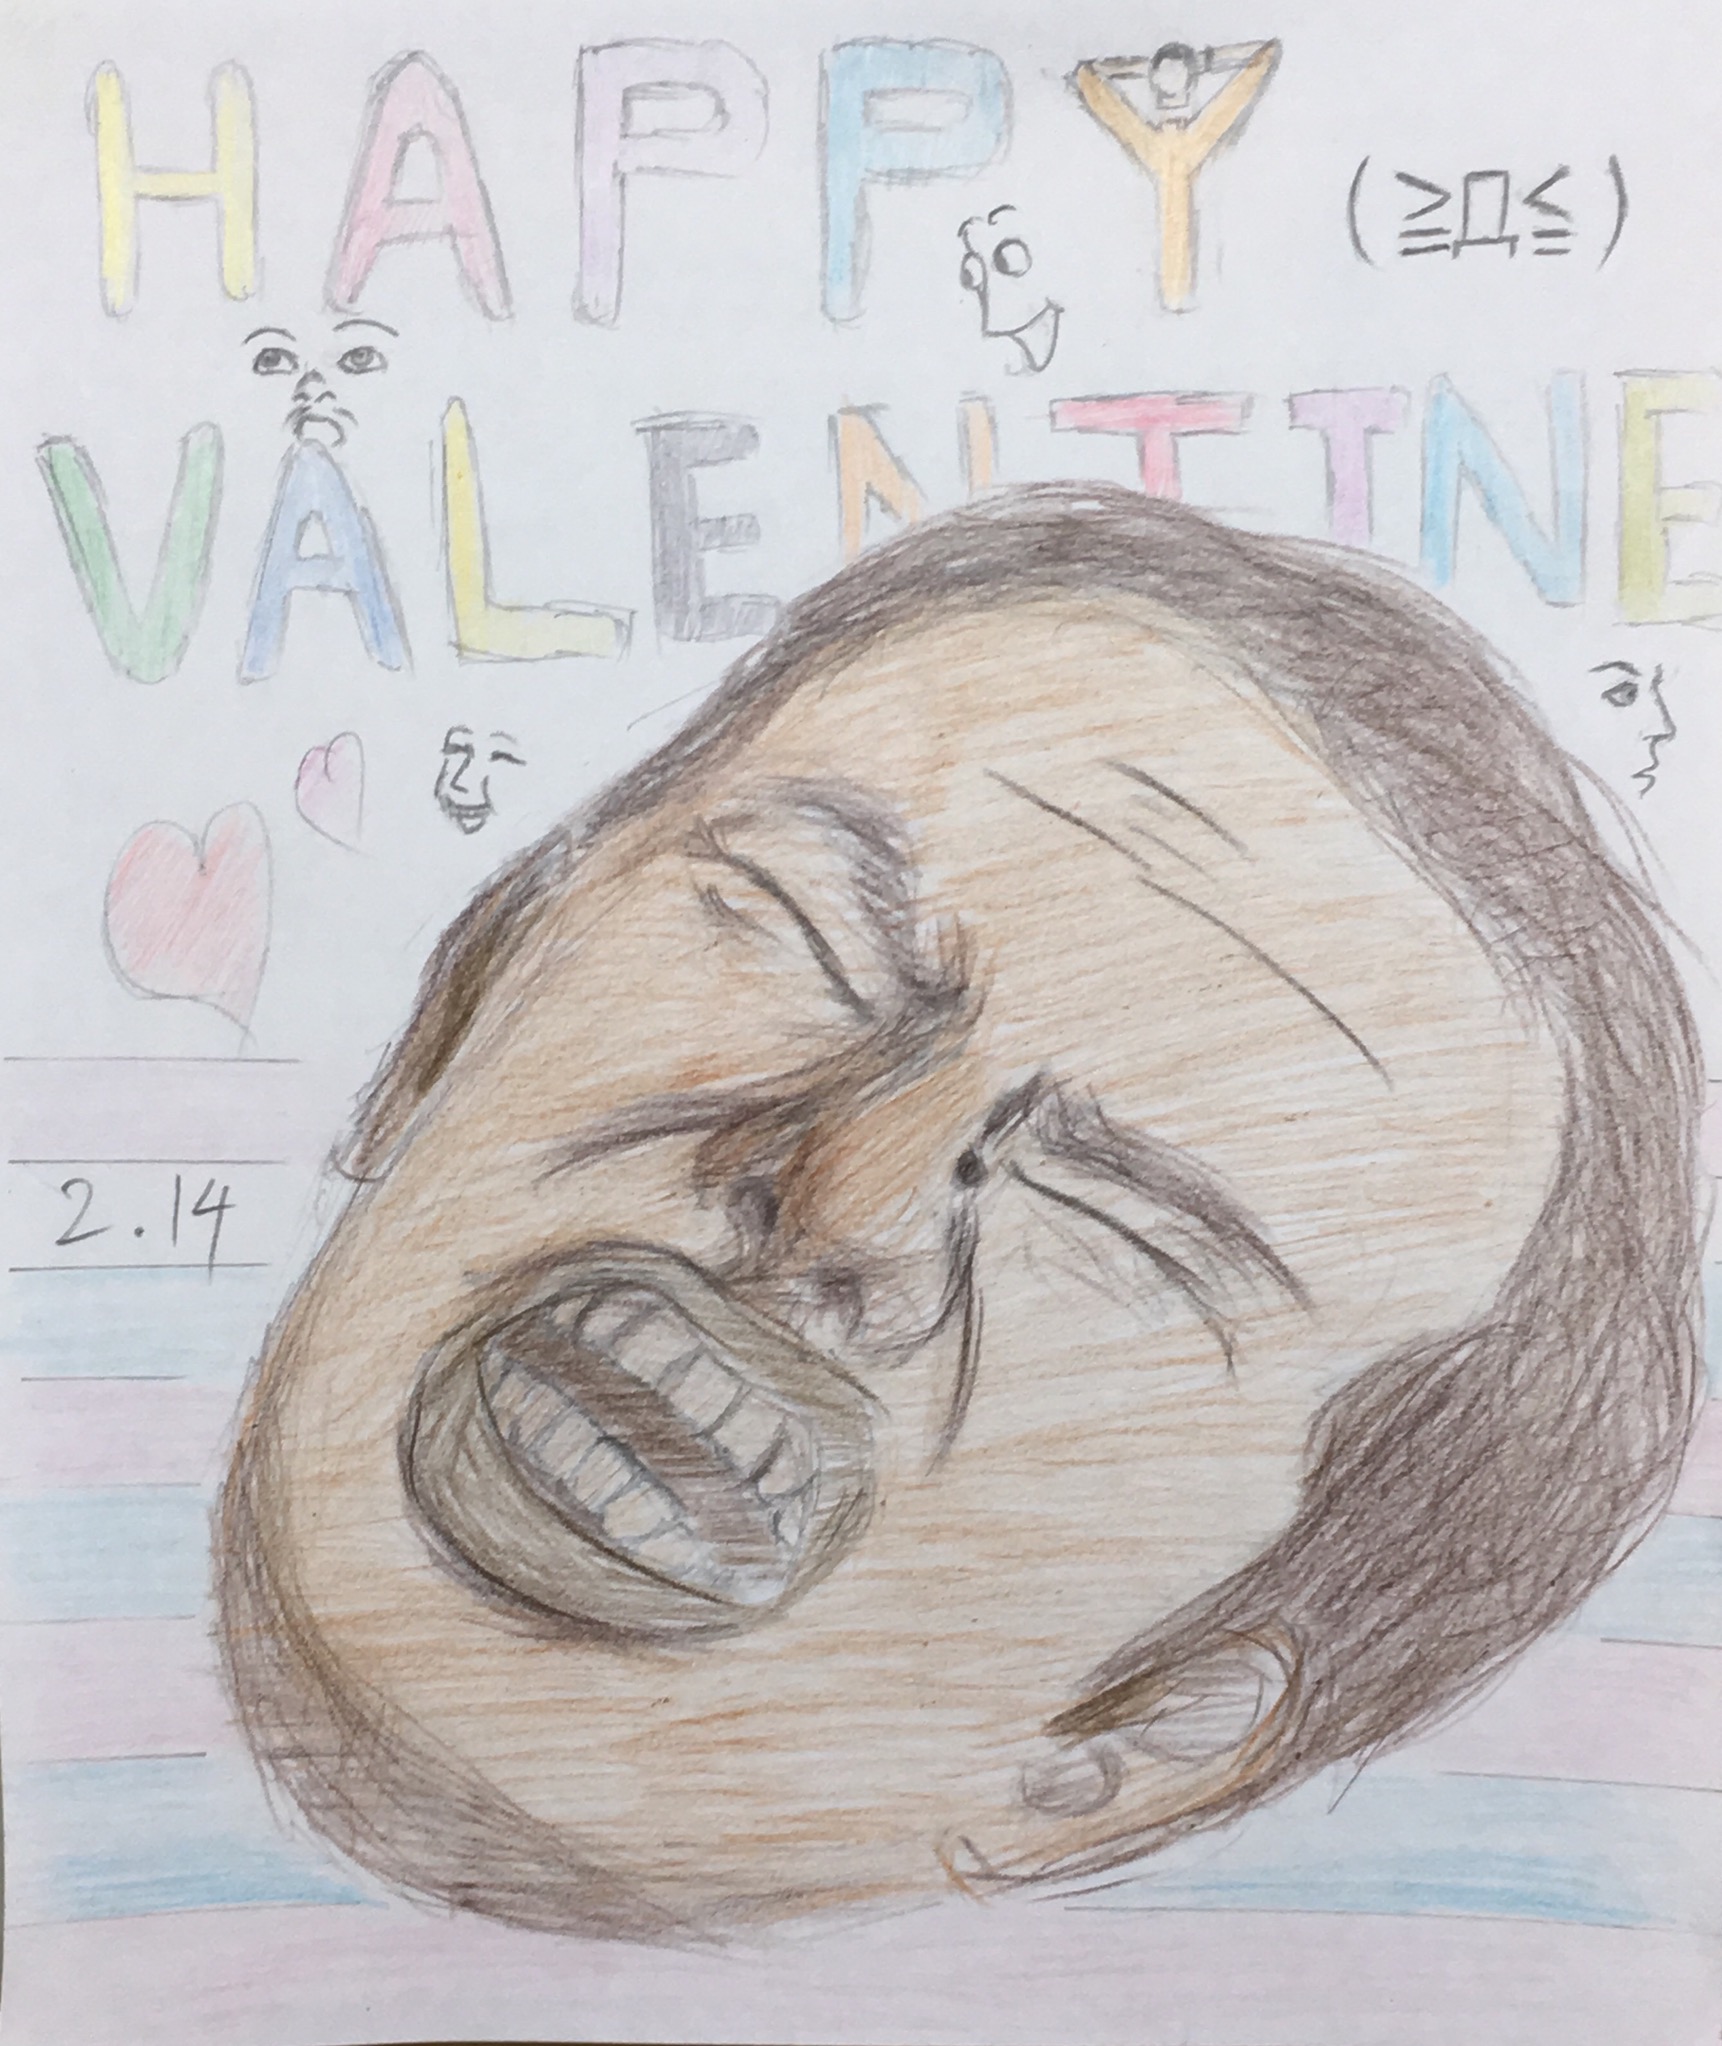 HAPPY
(≧Д≦)
VALENTINE
2.14